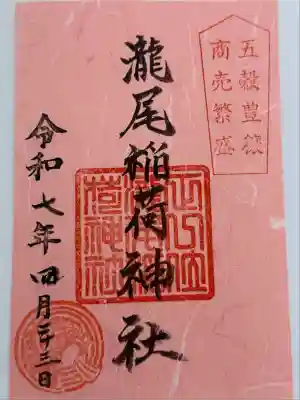 五穀豊穣
商売繁盛
瀧尾稲荷神社
正一位
令和七年四月二十三日